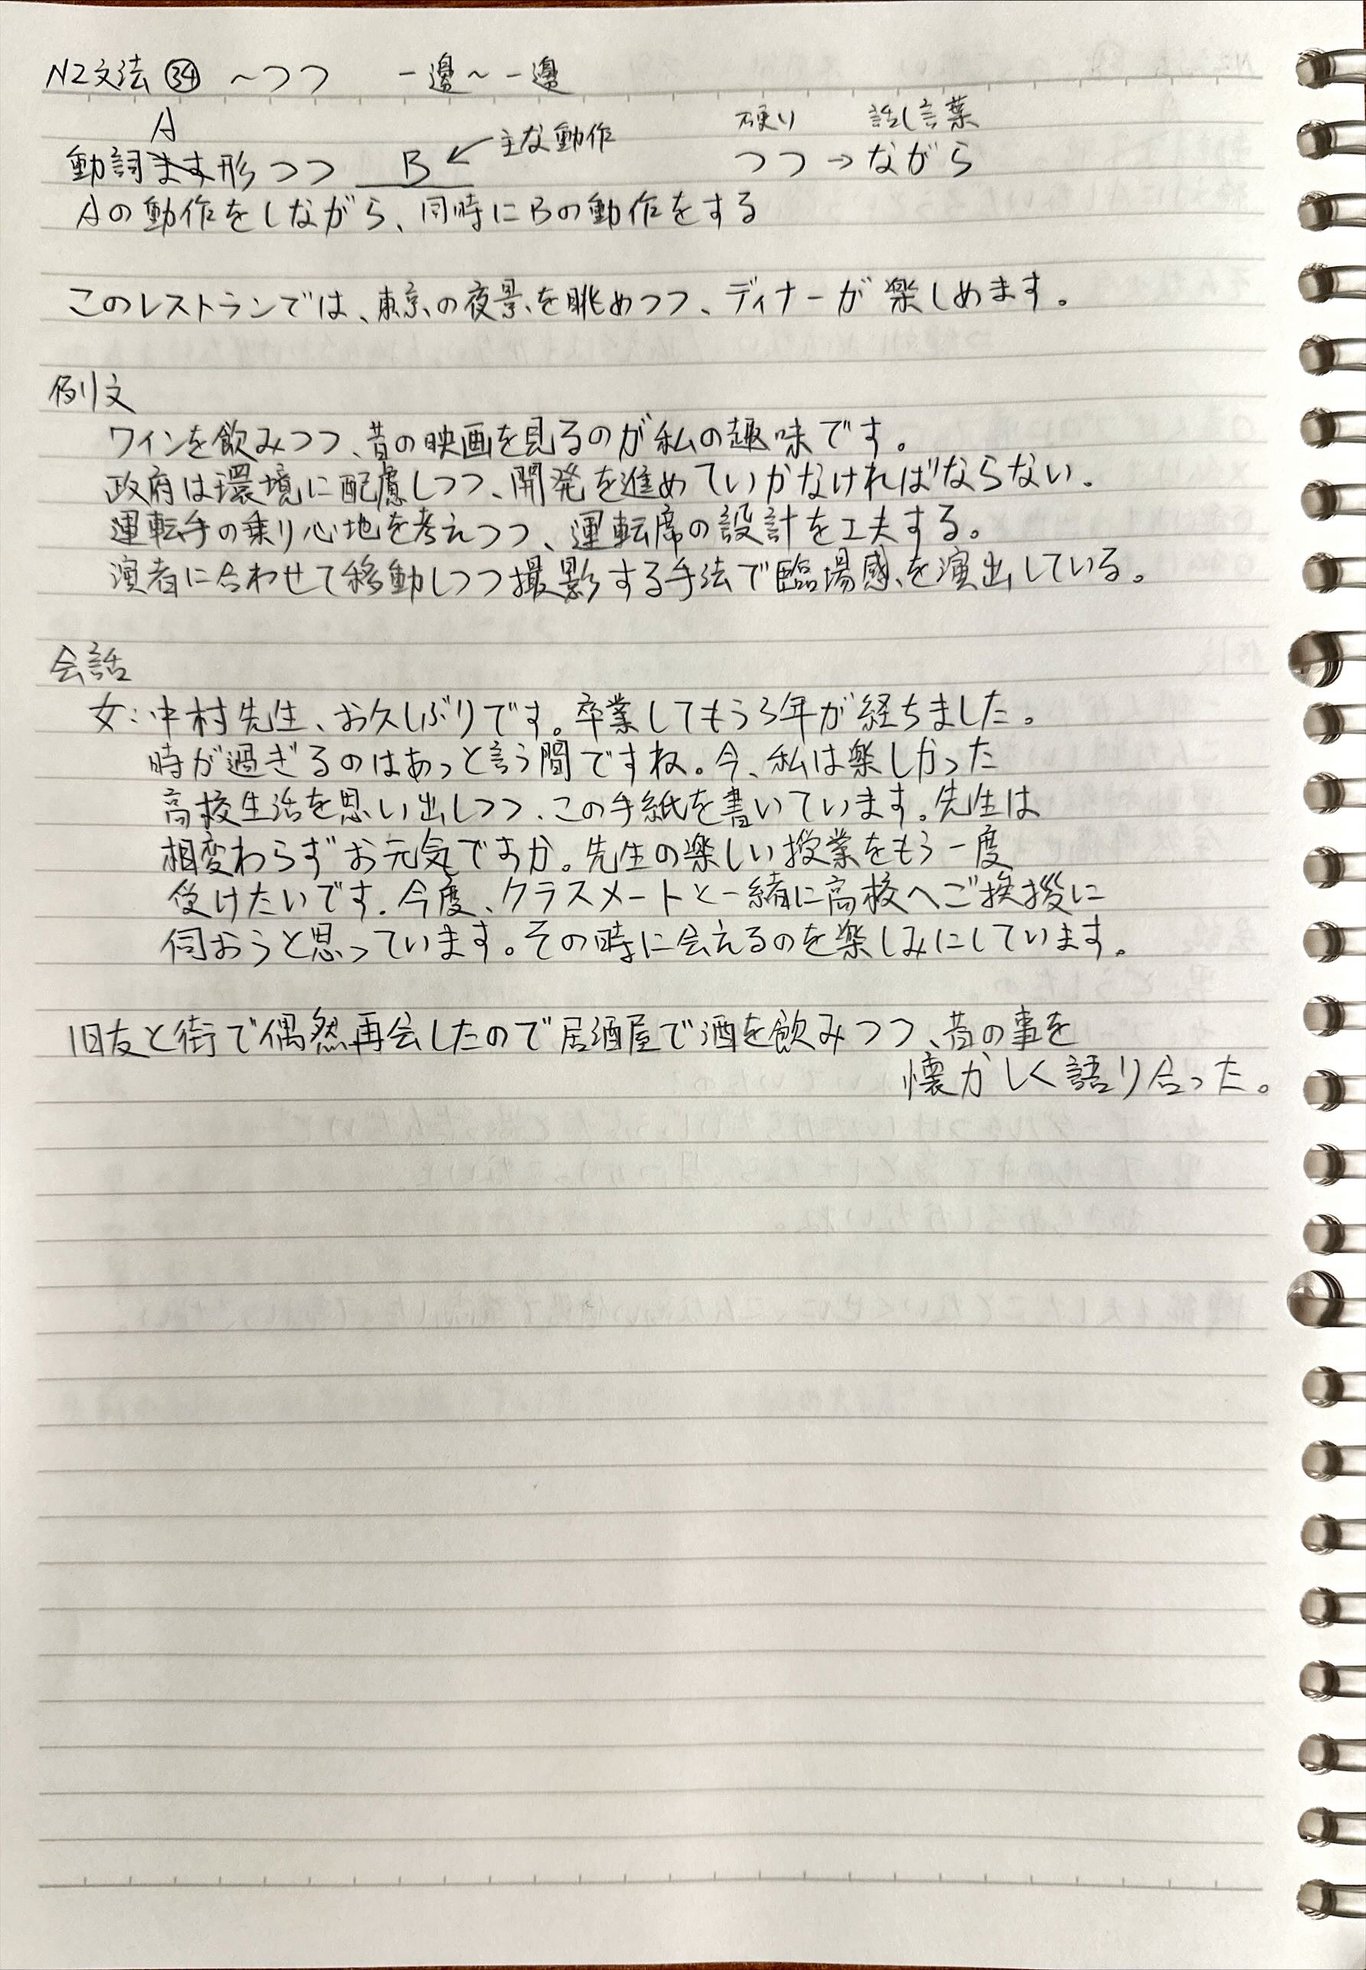 N2文法 ㉞ ～つつ 一邊～一邊
A 硬い 話し言葉
動詞ます形つつ B ← 主な動作 つつ→ながら
Aの動作をしながら、同時にBの動作をする
このレストランでは、東京の夜景を眺めつつ、ディナーが楽しめます。
例文
ワインを飲みつつ、昔の映画を見るのが私の趣味です。
政府は環境に配慮しつつ、開発を進めていかなければならない。
運転手の乗り心地を考えつつ、運転席の設計を工夫する。
演者に合わせて移動しつつ撮影する手法で臨場感を演出している。
会話
女:中村先生、お久しぶりです。卒業してもう3年が経ちました。
時が過ぎるのはあっと言う間ですね。今、私は楽しかった
高校生活を思い出しつつ、この手紙を書いています。先生は
相変わらずお元気ですか。先生の楽しい授業をもう一度
受けたいです。今度、クラスメートと一緒に高校へご挨拶に
伺おうと思っています。その時に会えるのを楽しみにしています。
旧友と街で偶然再会したので居酒屋で酒を飲みつつ、昔の事を
懐かしく語り合った。